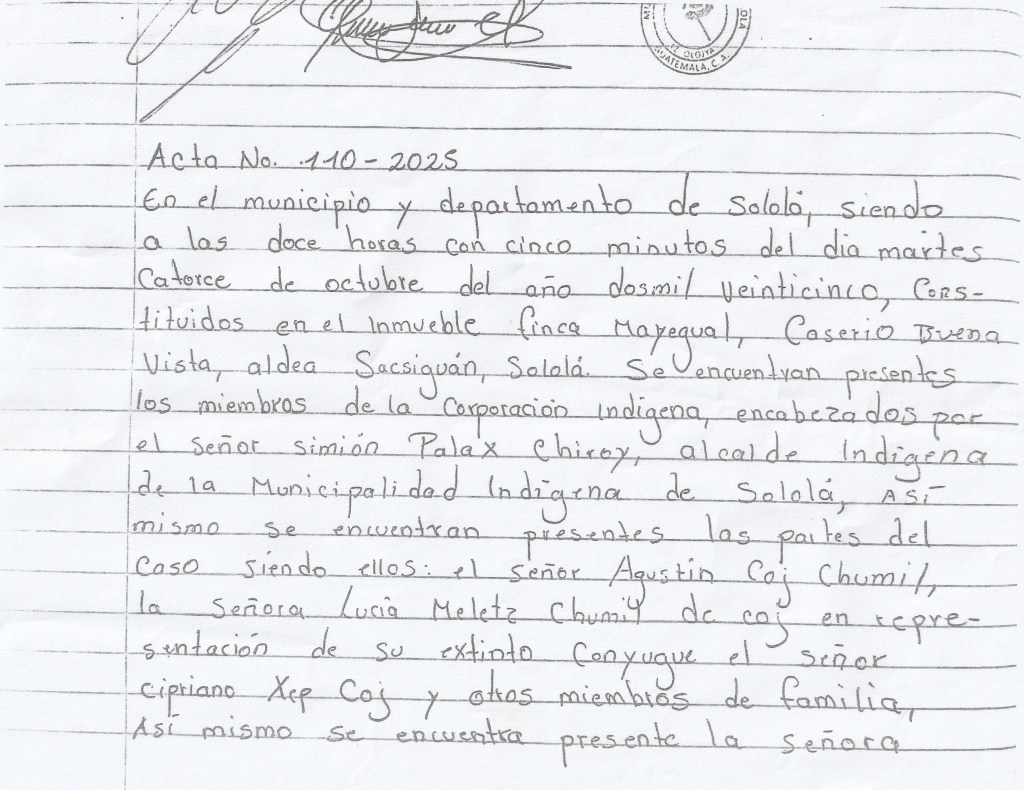 MU OLA
OLOJYA
GUATEMALA, C. A.
Acta No. 110-2025
En el municipio y departamento de Sololá, siendo
a las doce horas con cinco minutos del dia martes
Catorce de octubre del año dosmil veinticinco, Cons-
tituidos en el Inmueble finca Mayegual, Caserio Buena
Vista, aldea Sacsiguán, Sololá. Se encuentran presentes
los miembros de la Corporación Indigena, encabezados por
el señor simión Palax Chiroy, alcalde Indigena
de la Municipalidad Indigena de Sololá, Así
mismo se encuentran presentes las partes del
Caso siendo ellos: el señor Agustin Coj Chumil,
la señora Lucia Meletz Chumil de coj en repre-
sentación de su extinto Conyugue el señor
cipriano Xep Coj y otros miembros de familia,
Así mismo se encuentra presente la señora